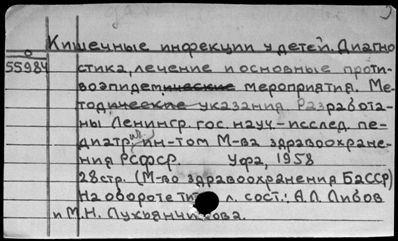 Кишечные инфекции у детей. Диагно
55984 стика, лечение и основные проти-
воэпидемические мероприятия. Ме-
тодические указания Разработа-
ны Ленингр. гос. науч.-исслед. пе-
диатр. ин-том М-ва здравоохране-
ния РСФСР. Уфа, 1958
28стр. (М-во здравоохранения БаССР)
На обороте тит. л. сост.: А.Л. Либов
и М.Н. ва.